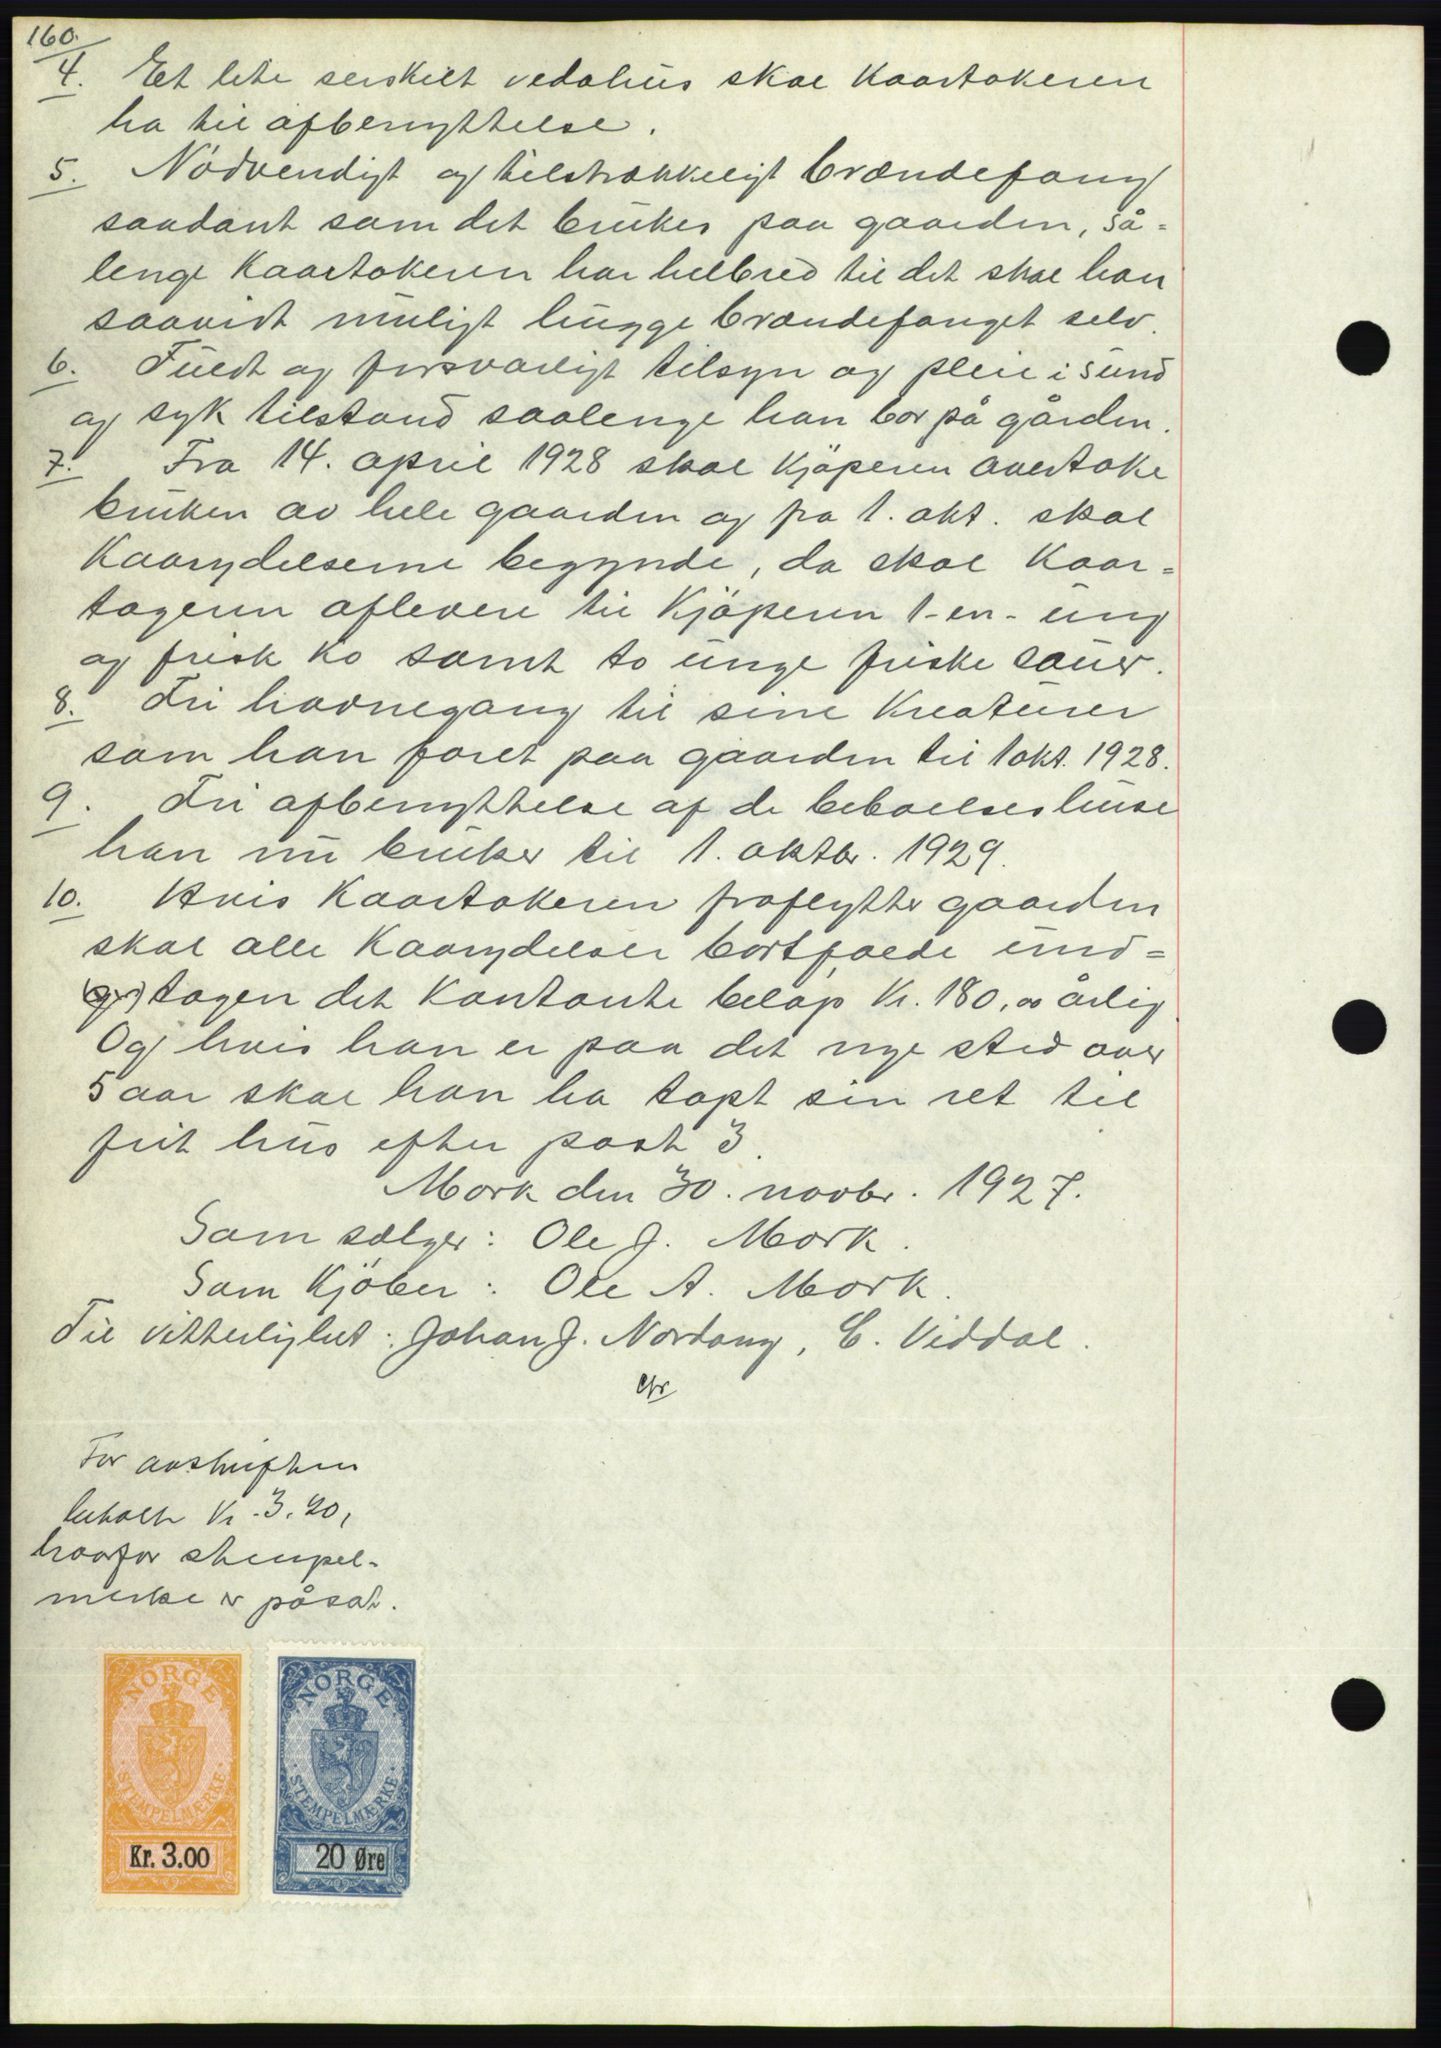 160.
4. Et lite serskilt vedahus skal Kaartakeren
ha til afbenyttelse.
5. Nödvendigt og tilstrækkeligt brændefang
saadant som det brukes paa gaarden, så-
lenge Kaartakeren har helbred til det skal han
saavidt muligt hugge brændefanget selv.
6. Fuldt og forsvarligt tilsyn og pleie i sund
og syk tilstand saalenge han bor på gården.
7. Fra 14. april 1928 skal Kjöperen overtake
bruken av hele gaarden og fra 1. okt. skal
Kaarydelserne begynde, da skal Kaar-
tageren aflevere til Kjöperen 1-en- ung
og frisk ko samt to unge friske sauer.
8. Fri havnegang til sine Kreaturer
som han foret paa gaarden til 1 okt. 1928.
9. Fri afbenyttelse af de beboelseshuse
han nu bruker til 1. oktbr. 1929.
10. Hvis Kaartakeren fraflytter gaarden
skal alle Kaarydelser bortfalde und-
tagen det Kontante belöp Kr. 180,00 årlig.
Og hvis han er paa det nye sted over
5 aar skal han ha tapt sin ret til
frit hus efter post 3.
Mork den 30. novbr. 1927.
Som sælger: Ole J. Mork.
Som Kjöber: Ole A. Mork.
Til vitterlighet: Johan J. Nordang, E. Viddal.
For avskriften
betalt Kr. 3.20,
hvorfor stempel-
merke er påsat.
NORGE
STEMPELMÆRKE
Kr. 3.00
NORGE
STEMPELMÆRKE
20 Øre